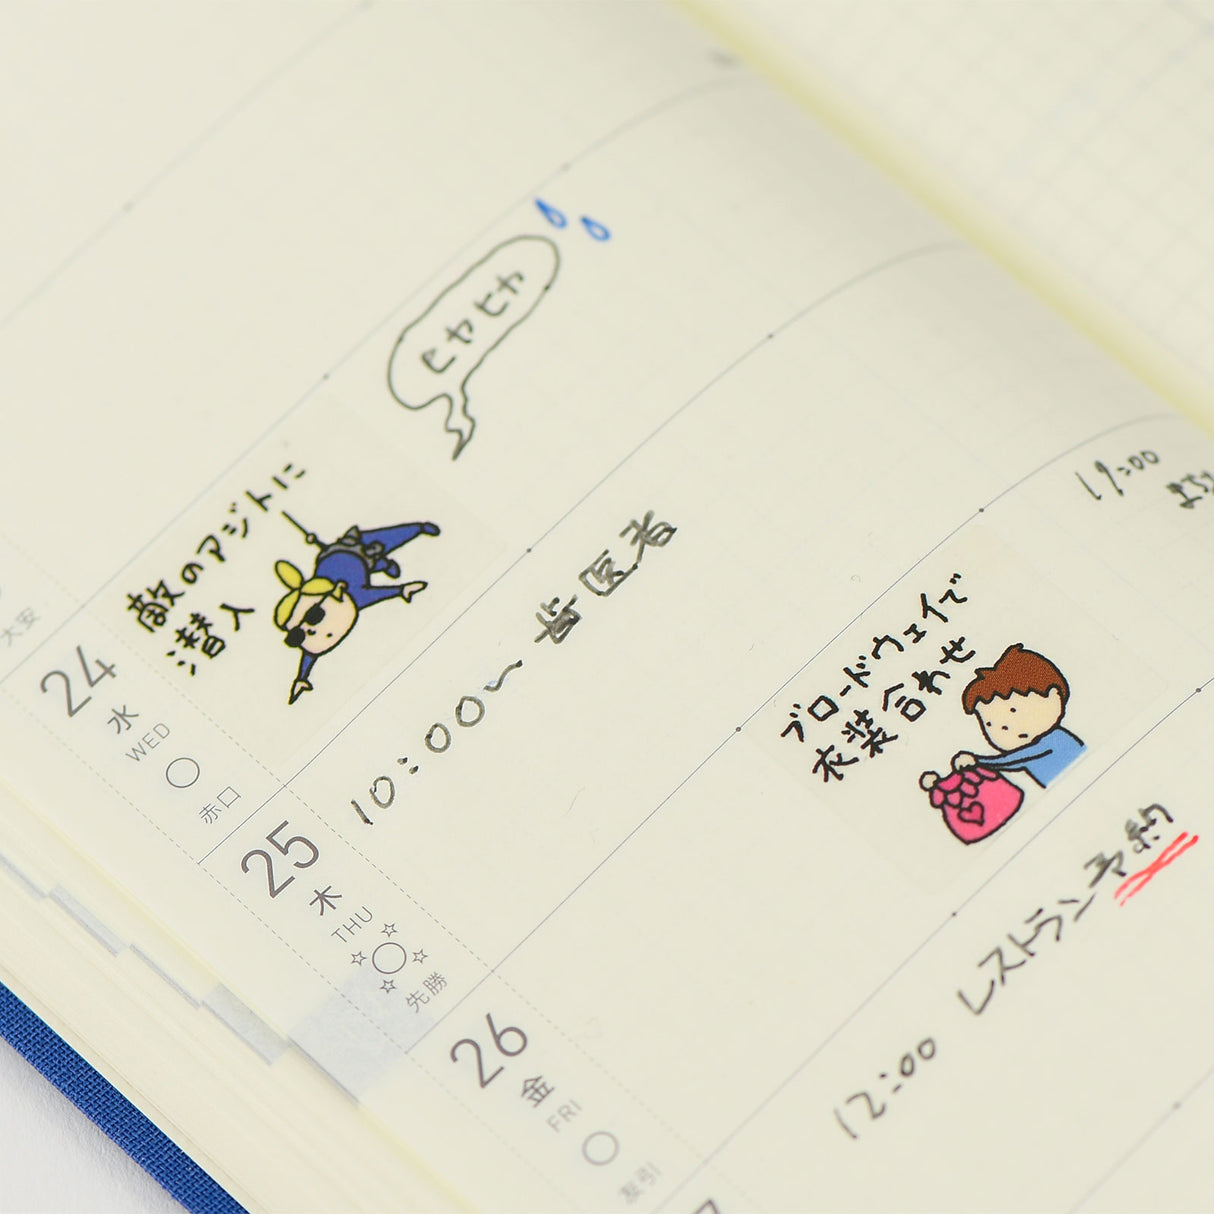 大安
24
水
WED
赤口
敵のアジトに
潜入
ヒヤヒヤ
25
木
THU
先勝
10:00~歯医者
ブロードウェイで
衣装合わせ
19:00
26
金
FRI
友引
12:00 レストラン予約